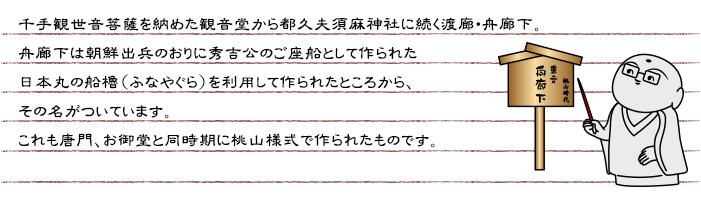 千手観世音菩薩を納めた観音堂から都久夫須麻神社に続く渡廊・舟廊下。
舟廊下は朝鮮出兵のおりに秀吉公のご座船として作られた
日本丸の船櫓（ふなやぐら）を利用して作られたところから、
その名がついています。
これも唐門、お御堂と同時期に桃山様式で作られたものです。
桃山時代
重文
舟廊下